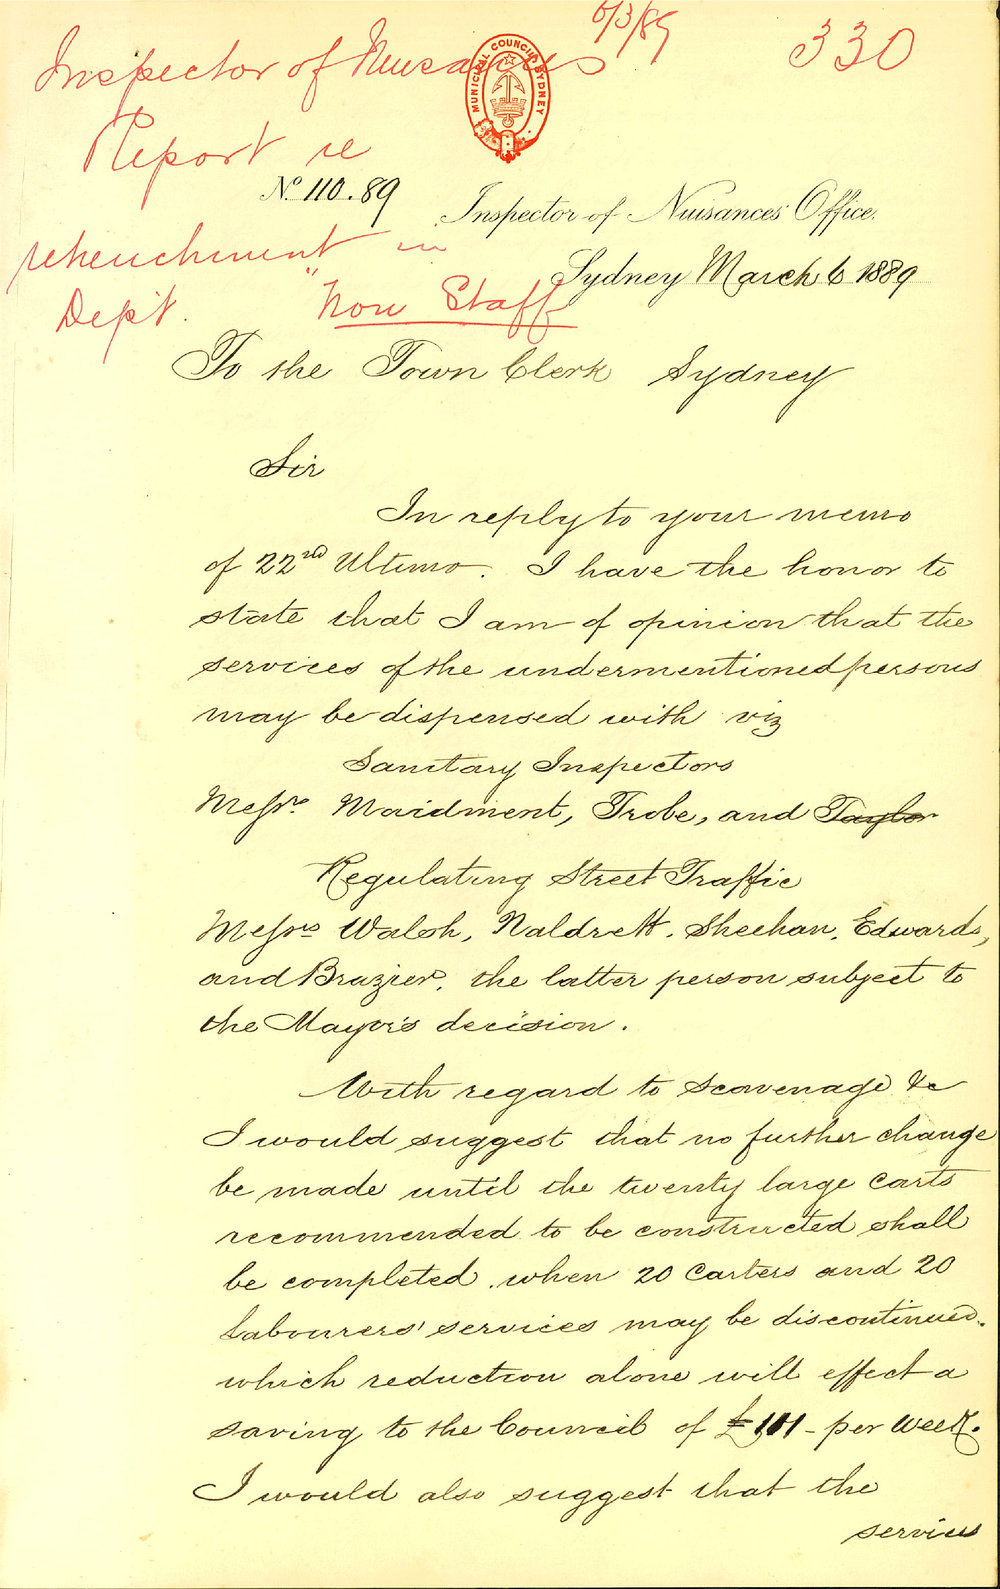 6/3/89
330
Inspector of Nuisances
Report re
retrenchment in
Dept. "Now Staff
MUNICIPAL COUNCIL SYDNEY
No. 110.89
Inspector of Nuisances' Office.
Sydney March 6 1889
To the Town Clerk Sydney
Sir
In reply to your memo
of 22nd Ultimo. I have the honor to
state that I am of opinion that the
services of the undermentioned persons
may be dispensed with viz
Sanitary Inspectors
Messrs. Maidment, Trobe, and Taylor
Regulating Street Traffic
Messrs Walsh, Naldrett, Sheehan, Edwards,
and Brazier, the latter person subject to
the Mayor's decision.
With regard to Scavenage &c
I would suggest that no further change
be made until the twenty large carts
recommended to be constructed shall
be completed, when 20 Carters and 20
Labourers' services may be discontinued.
which reduction alone will effect a
saving to the Council of £101 - per week.
I would also suggest that the
services